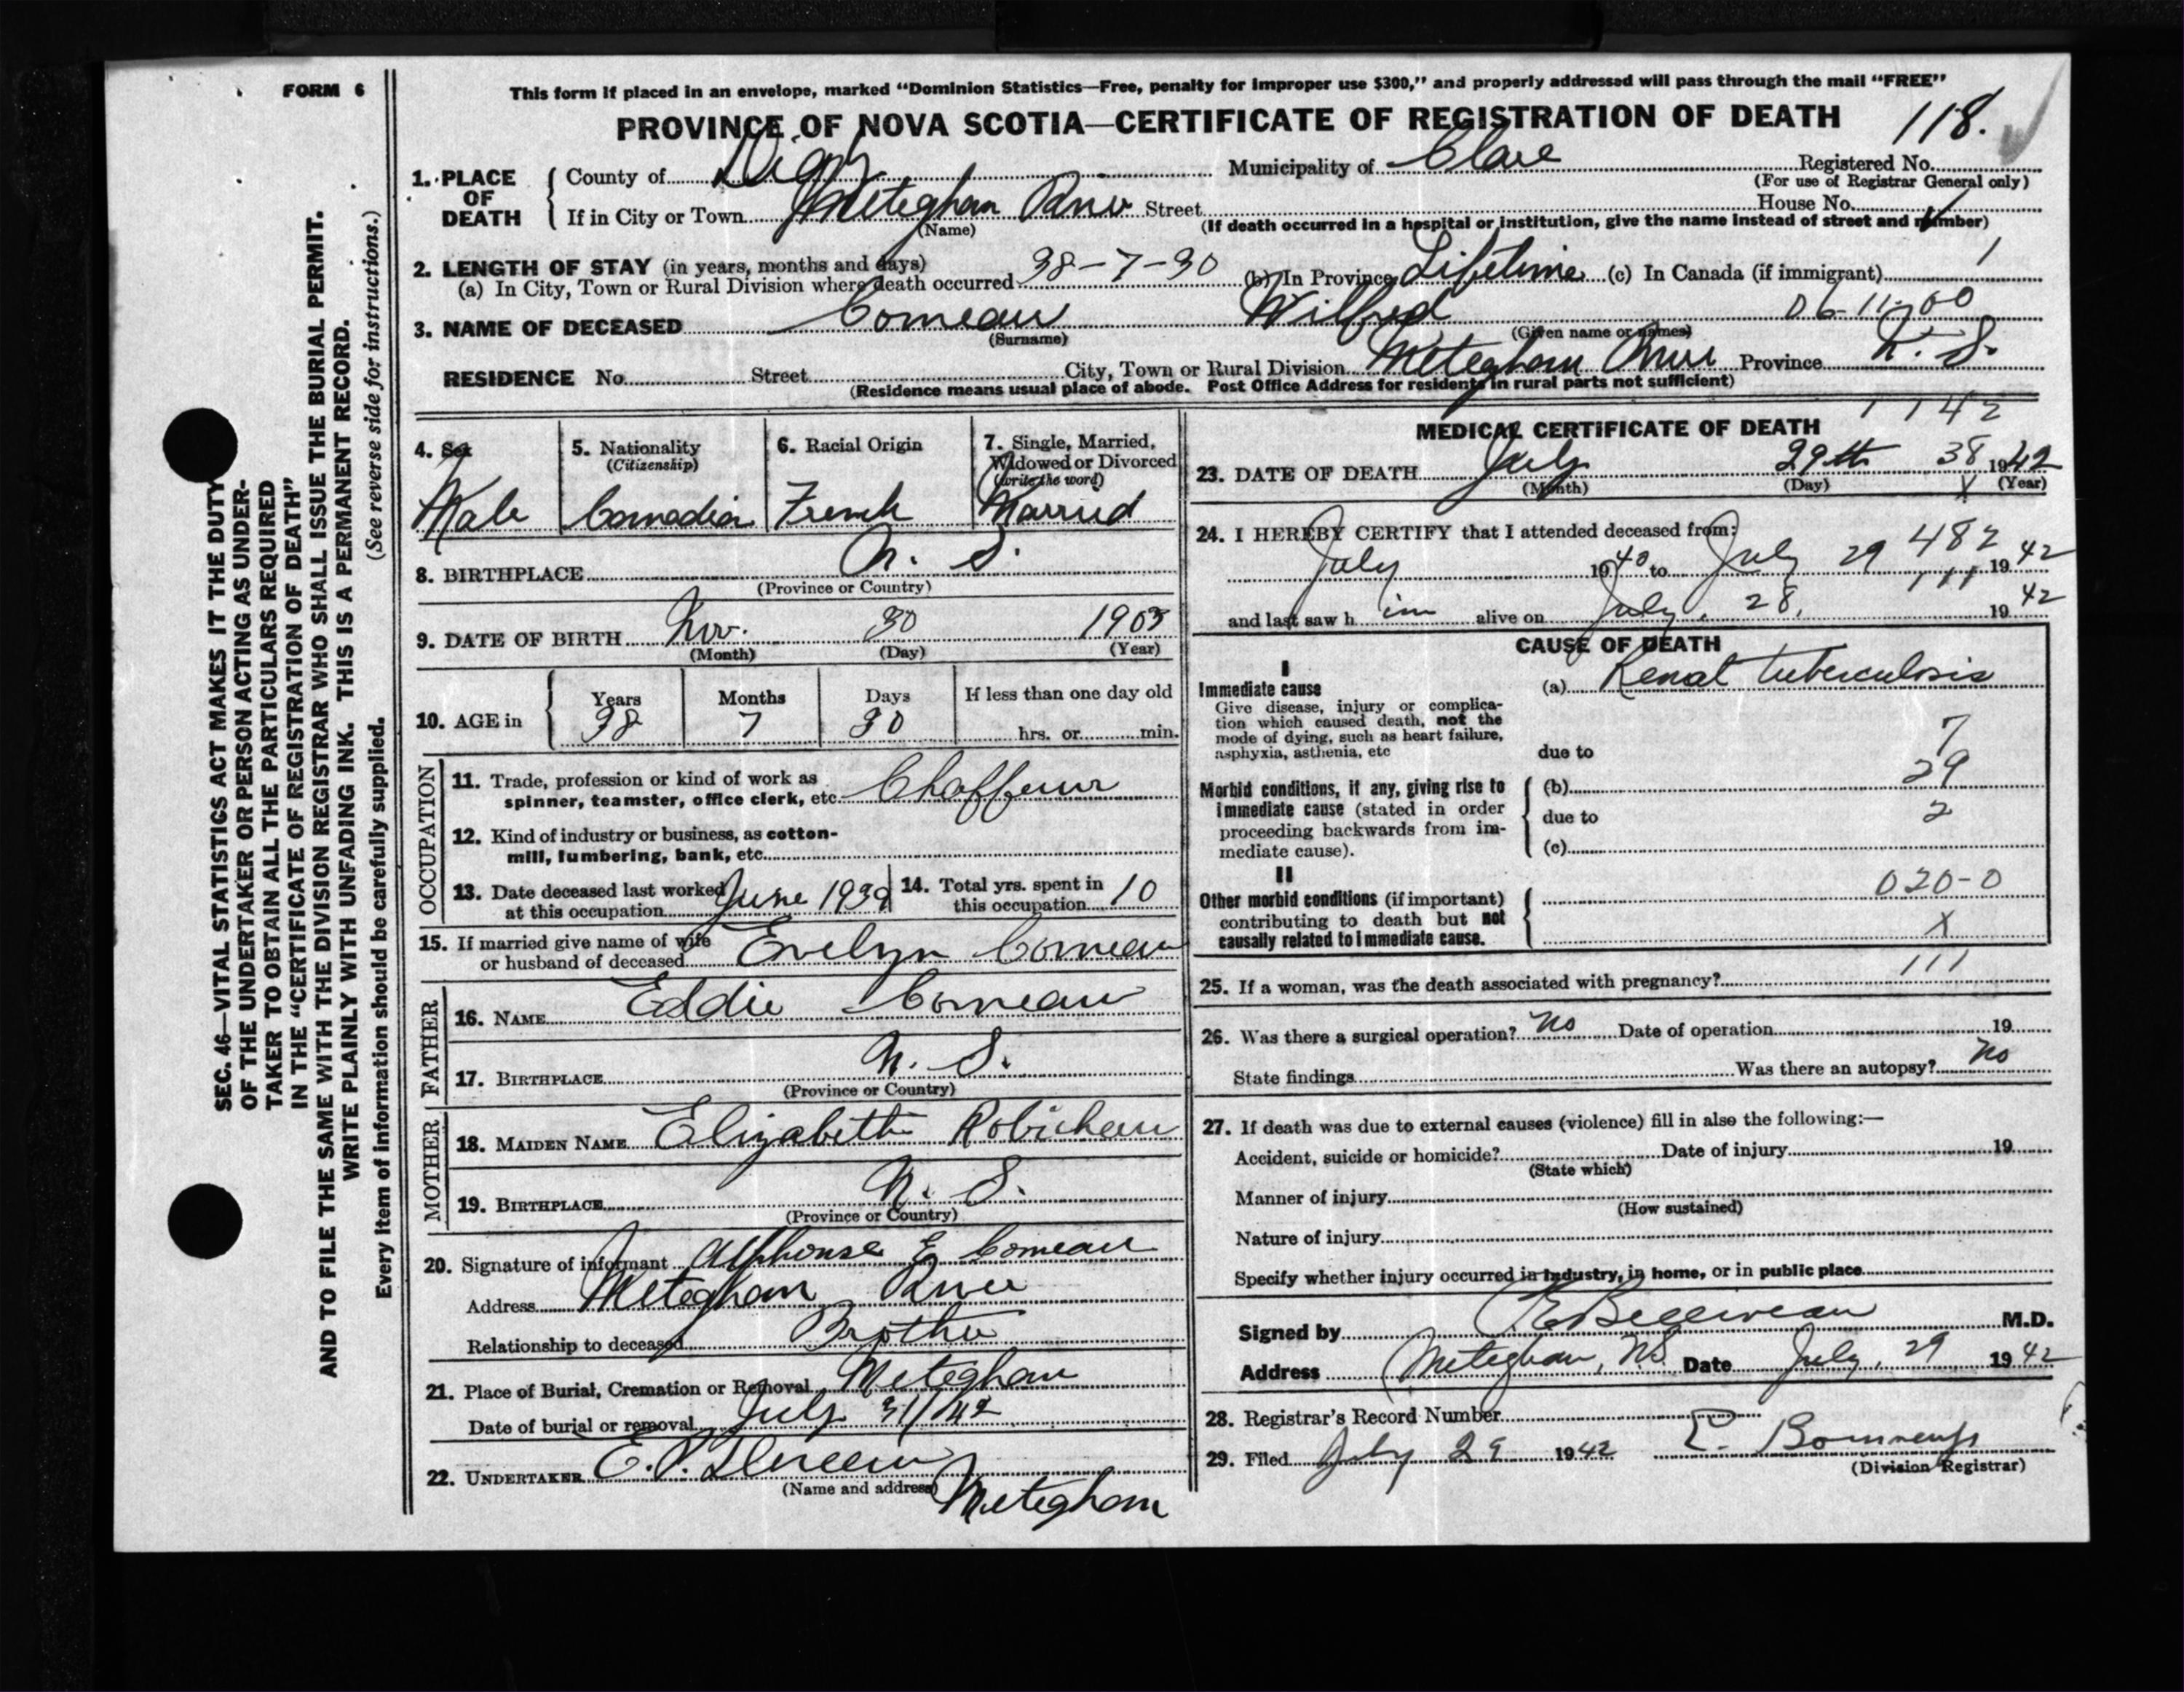 FORM 6
This form if placed in an envelope, marked "Dominion Statistics—Free, penalty for improper use $300," and properly addressed will pass through the mail "FREE"
PROVINCE OF NOVA SCOTIA—CERTIFICATE OF REGISTRATION OF DEATH 118.
1. PLACE OF DEATH
County of Digby Municipality of Clare Registered No.
(For use of Registrar General only)
If in City or Town Meteghan River Street House No.
(Name) (If death occurred in a hospital or institution, give the name instead of street and number)
2. LENGTH OF STAY (in years, months and days)
(a) In City, Town or Rural Division where death occurred 38-7-30 (b) In Province Lifetime (c) In Canada (if immigrant) 1
06-11-00
3. NAME OF DECEASED Comeau Wilfred
(Surname) (Given name or names)
RESIDENCE No. Street City, Town or Rural Division Meteghan River Province N. S.
(Residence means usual place of abode. Post Office Address for residents in rural parts not sufficient)
SEC. 46—VITAL STATISTICS ACT MAKES IT THE DUTY
OF THE UNDERTAKER OR PERSON ACTING AS UNDER-
TAKER TO OBTAIN ALL THE PARTICULARS REQUIRED
IN THE "CERTIFICATE OF REGISTRATION OF DEATH"
AND TO FILE THE SAME WITH THE DIVISION REGISTRAR WHO SHALL ISSUE THE BURIAL PERMIT.
WRITE PLAINLY WITH UNFADING INK. THIS IS A PERMANENT RECORD.
Every item of information should be carefully supplied. (See reverse side for instructions.)
4. Sex
Male
5. Nationality
(Citizenship)
Canadian
6. Racial Origin
French
7. Single, Married,
Widowed or Divorced
(write the word)
Married
8. BIRTHPLACE N. S.
(Province or Country)
9. DATE OF BIRTH Nov. 30 1903
(Month) (Day) (Year)
10. AGE in
Years Months Days If less than one day old
38 7 30 hrs. or min.
OCCUPATION
11. Trade, profession or kind of work as
spinner, teamster, office clerk, etc. Chaffeur
12. Kind of industry or business, as cotton-
mill, lumbering, bank, etc.
13. Date deceased last worked
at this occupation June 1939
14. Total yrs. spent in
this occupation 10
15. If married give name of wife
or husband of deceased Evelyn Comeau
FATHER
16. NAME Eddie Comeau
17. BIRTHPLACE N. S.
(Province or Country)
MOTHER
18. MAIDEN NAME Elizabeth Robicheau
19. BIRTHPLACE N. S.
(Province or Country)
20. Signature of informant Alphonse E Comeau
Address Meteghan River
Relationship to deceased Brother
21. Place of Burial, Cremation or Removal Meteghan
Date of burial or removal July 31/42
22. UNDERTAKER E. P.
(Name and address) Meteghan
1 1 42
MEDICAL CERTIFICATE OF DEATH
23. DATE OF DEATH July 29th 38 1942
(Month) (Day) X (Year)
24. I HEREBY CERTIFY that I attended deceased from:
482
July 1940 to July 29 1942
111
and last saw him alive on July, 28, 1942
CAUSE OF DEATH
I
Immediate cause
Give disease, injury or complica-
tion which caused death, not the
mode of dying, such as heart failure,
asphyxia, asthenia, etc
(a) Renal tuberculosis
7
due to
29
Morbid conditions, if any, giving rise to
immediate cause (stated in order
proceeding backwards from im-
mediate cause).
(b)
due to 2
(c)
II
Other morbid conditions (if important)
contributing to death but not
causally related to immediate cause.
020-0
X
111
25. If a woman, was the death associated with pregnancy?
26. Was there a surgical operation? No Date of operation 19
State findings Was there an autopsy? No
27. If death was due to external causes (violence) fill in also the following:—
Accident, suicide or homicide? Date of injury 19
(State which)
Manner of injury
(How sustained)
Nature of injury
Specify whether injury occurred in industry, in home, or in public place
Signed by Belliveau M.D.
Address Meteghan, N.S. Date July, 29 1942
28. Registrar's Record Number
29. Filed July 29 1942 E.
(Division Registrar)